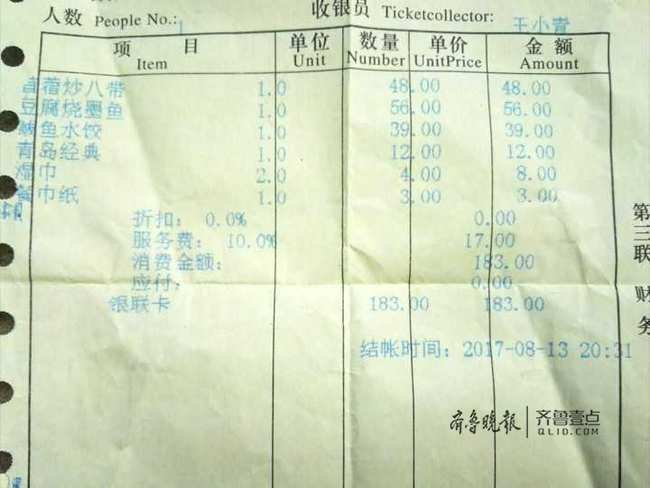 人数 People No.: 1 收银员 Ticketcollector: 王小青
项 目 单位 数量 单价 金额
Item Unit Number UnitPrice Amount
炒八带 1.0 48.00 48.00
豆腐烧墨鱼 1.0 56.00 56.00
鲅鱼水饺 1.0 39.00 39.00
青岛经典 1.0 12.00 12.00
湿巾 2.0 4.00 8.00
餐巾纸 1.0 3.00 3.00
折扣: 0.0% 0.00
服务费: 10.0% 17.00
消费金额: 183.00
应付: 0.00
银联卡 183.00 183.00
结帐时间: 2017-08-13 20:31
第
三
联
财
务
齐鲁晚报 齐鲁壹点
QLID.COM